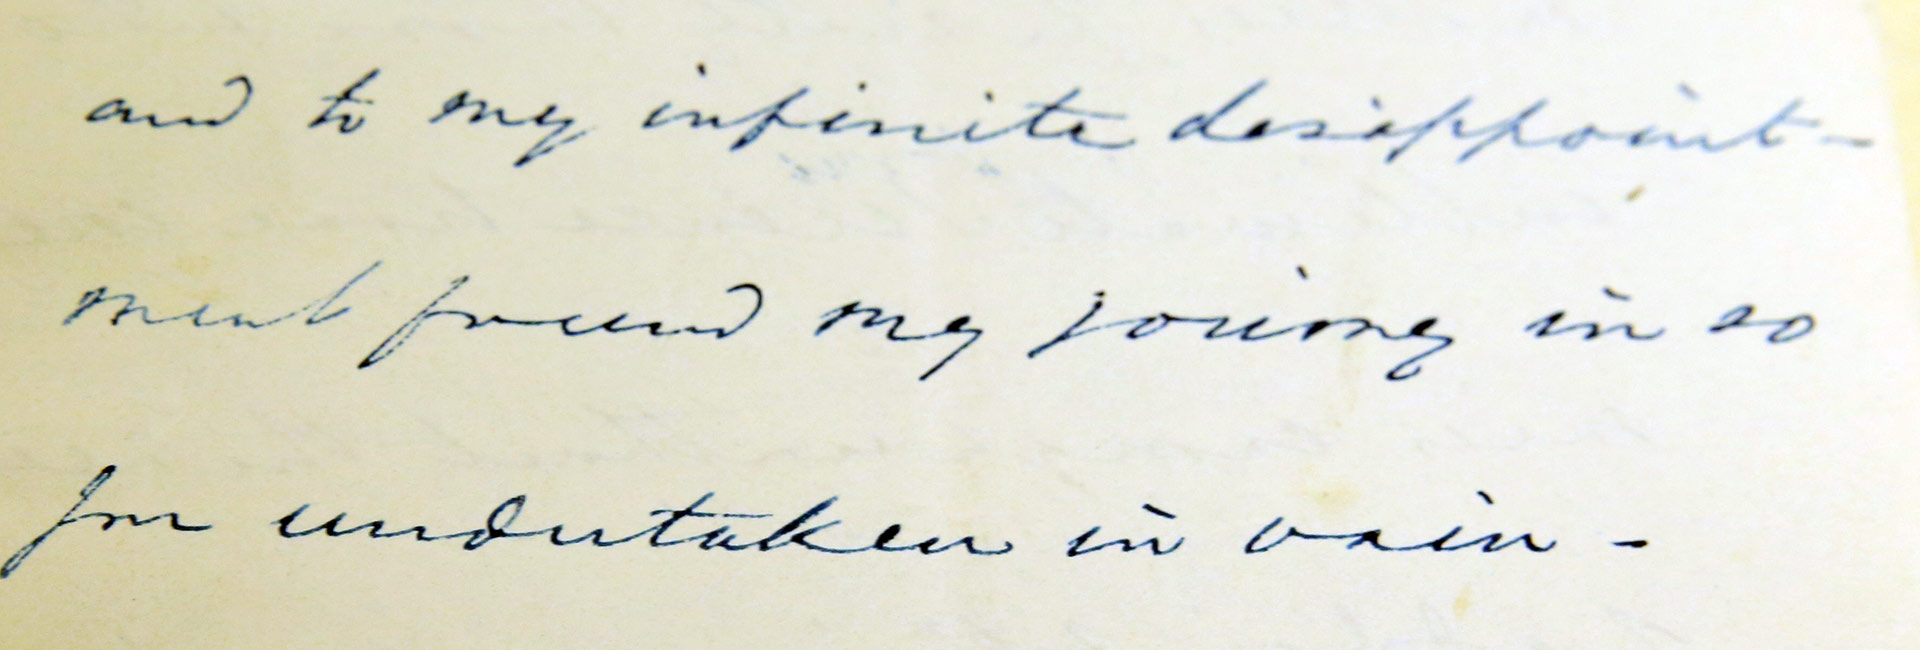 and to my infinite disappoint-
ment found my journey in so
far undertaken in vain -